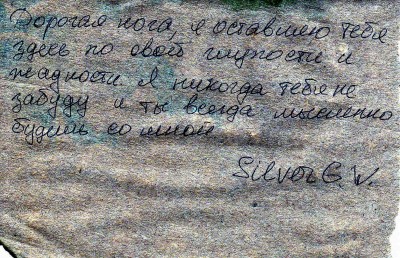 Дорогая нога, я оставляю тебя
здесь по своей глупости и
жадности. Я никогда тебя не
забуду и ты всегда мысленно
будешь со мной
Silver G.W.